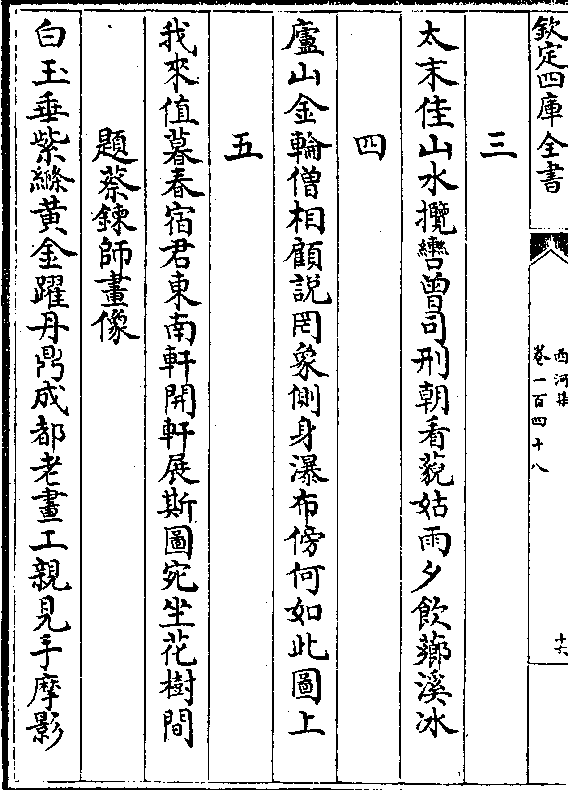 欽定四庫全書
西河集
卷一百四十八
十六
三
太末佳山水攬轡曾司刑朝看藐姑雨夕飲薌溪冰
四
廬山金輪僧相顧說罔象側身瀑布傍何如此圖上
五
我來值暮春宿君東南軒開軒展斯圖宛坐花樹間
題蔡鍊師畫像
白玉垂紫絛黃金躍丹鼎成都老畫工親見手摩影